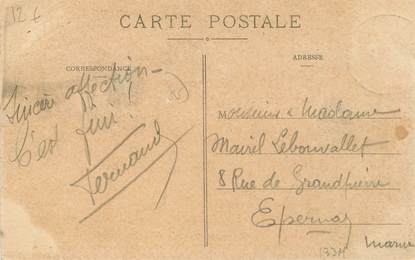 12 €
CARTE POSTALE
CORRESPONDANCE
ADRESSE
Sincère affection –
C'est fini !
Fernand
Monsieur & Madame
Mairel Lebonvallet
8 Rue de Grandpierre
Epernay
Marne